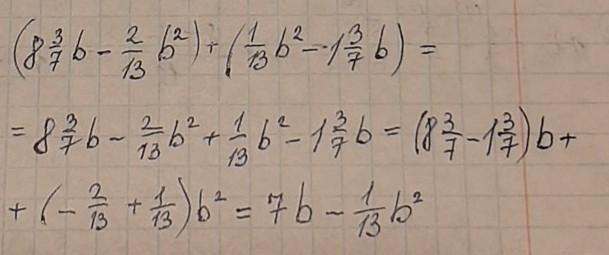 (8 3/7 b - 2/13 b²) + (1/13 b² - 1 3/7 b) =
= 8 3/7 b - 2/13 b² + 1/13 b² - 1 3/7 b = (8 3/7 - 1 3/7) b +
+ (- 2/13 + 1/13) b² = 7b - 1/13 b²